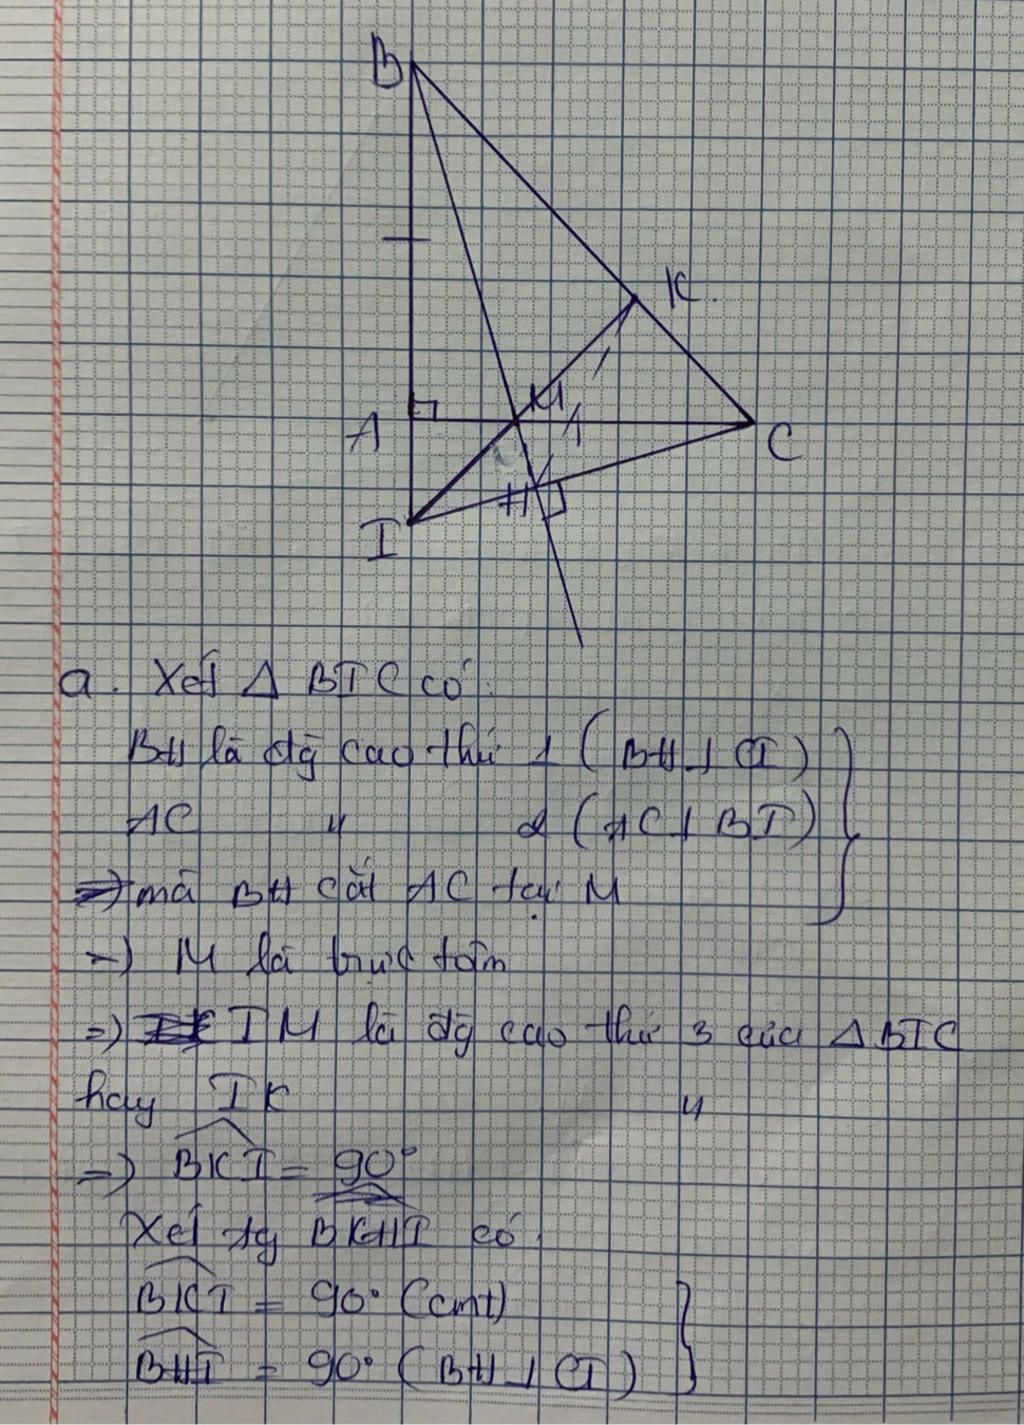 B
K.
M
A
C
H
I
a. Xét Δ BIC có:
BH là đg cao thứ 1 (BH ⊥ CI)
AC 〃 2 (AC ⊥ BI)
mà BH cắt AC tại M
=) M là trực tâm
=) IM là đg cao thứ 3 của Δ BIC
hay IK 〃
=) BKI = 90°
Xét tg BKHI có:
BKI = 90° (cmt)
BHI = 90° (BH ⊥ CI)